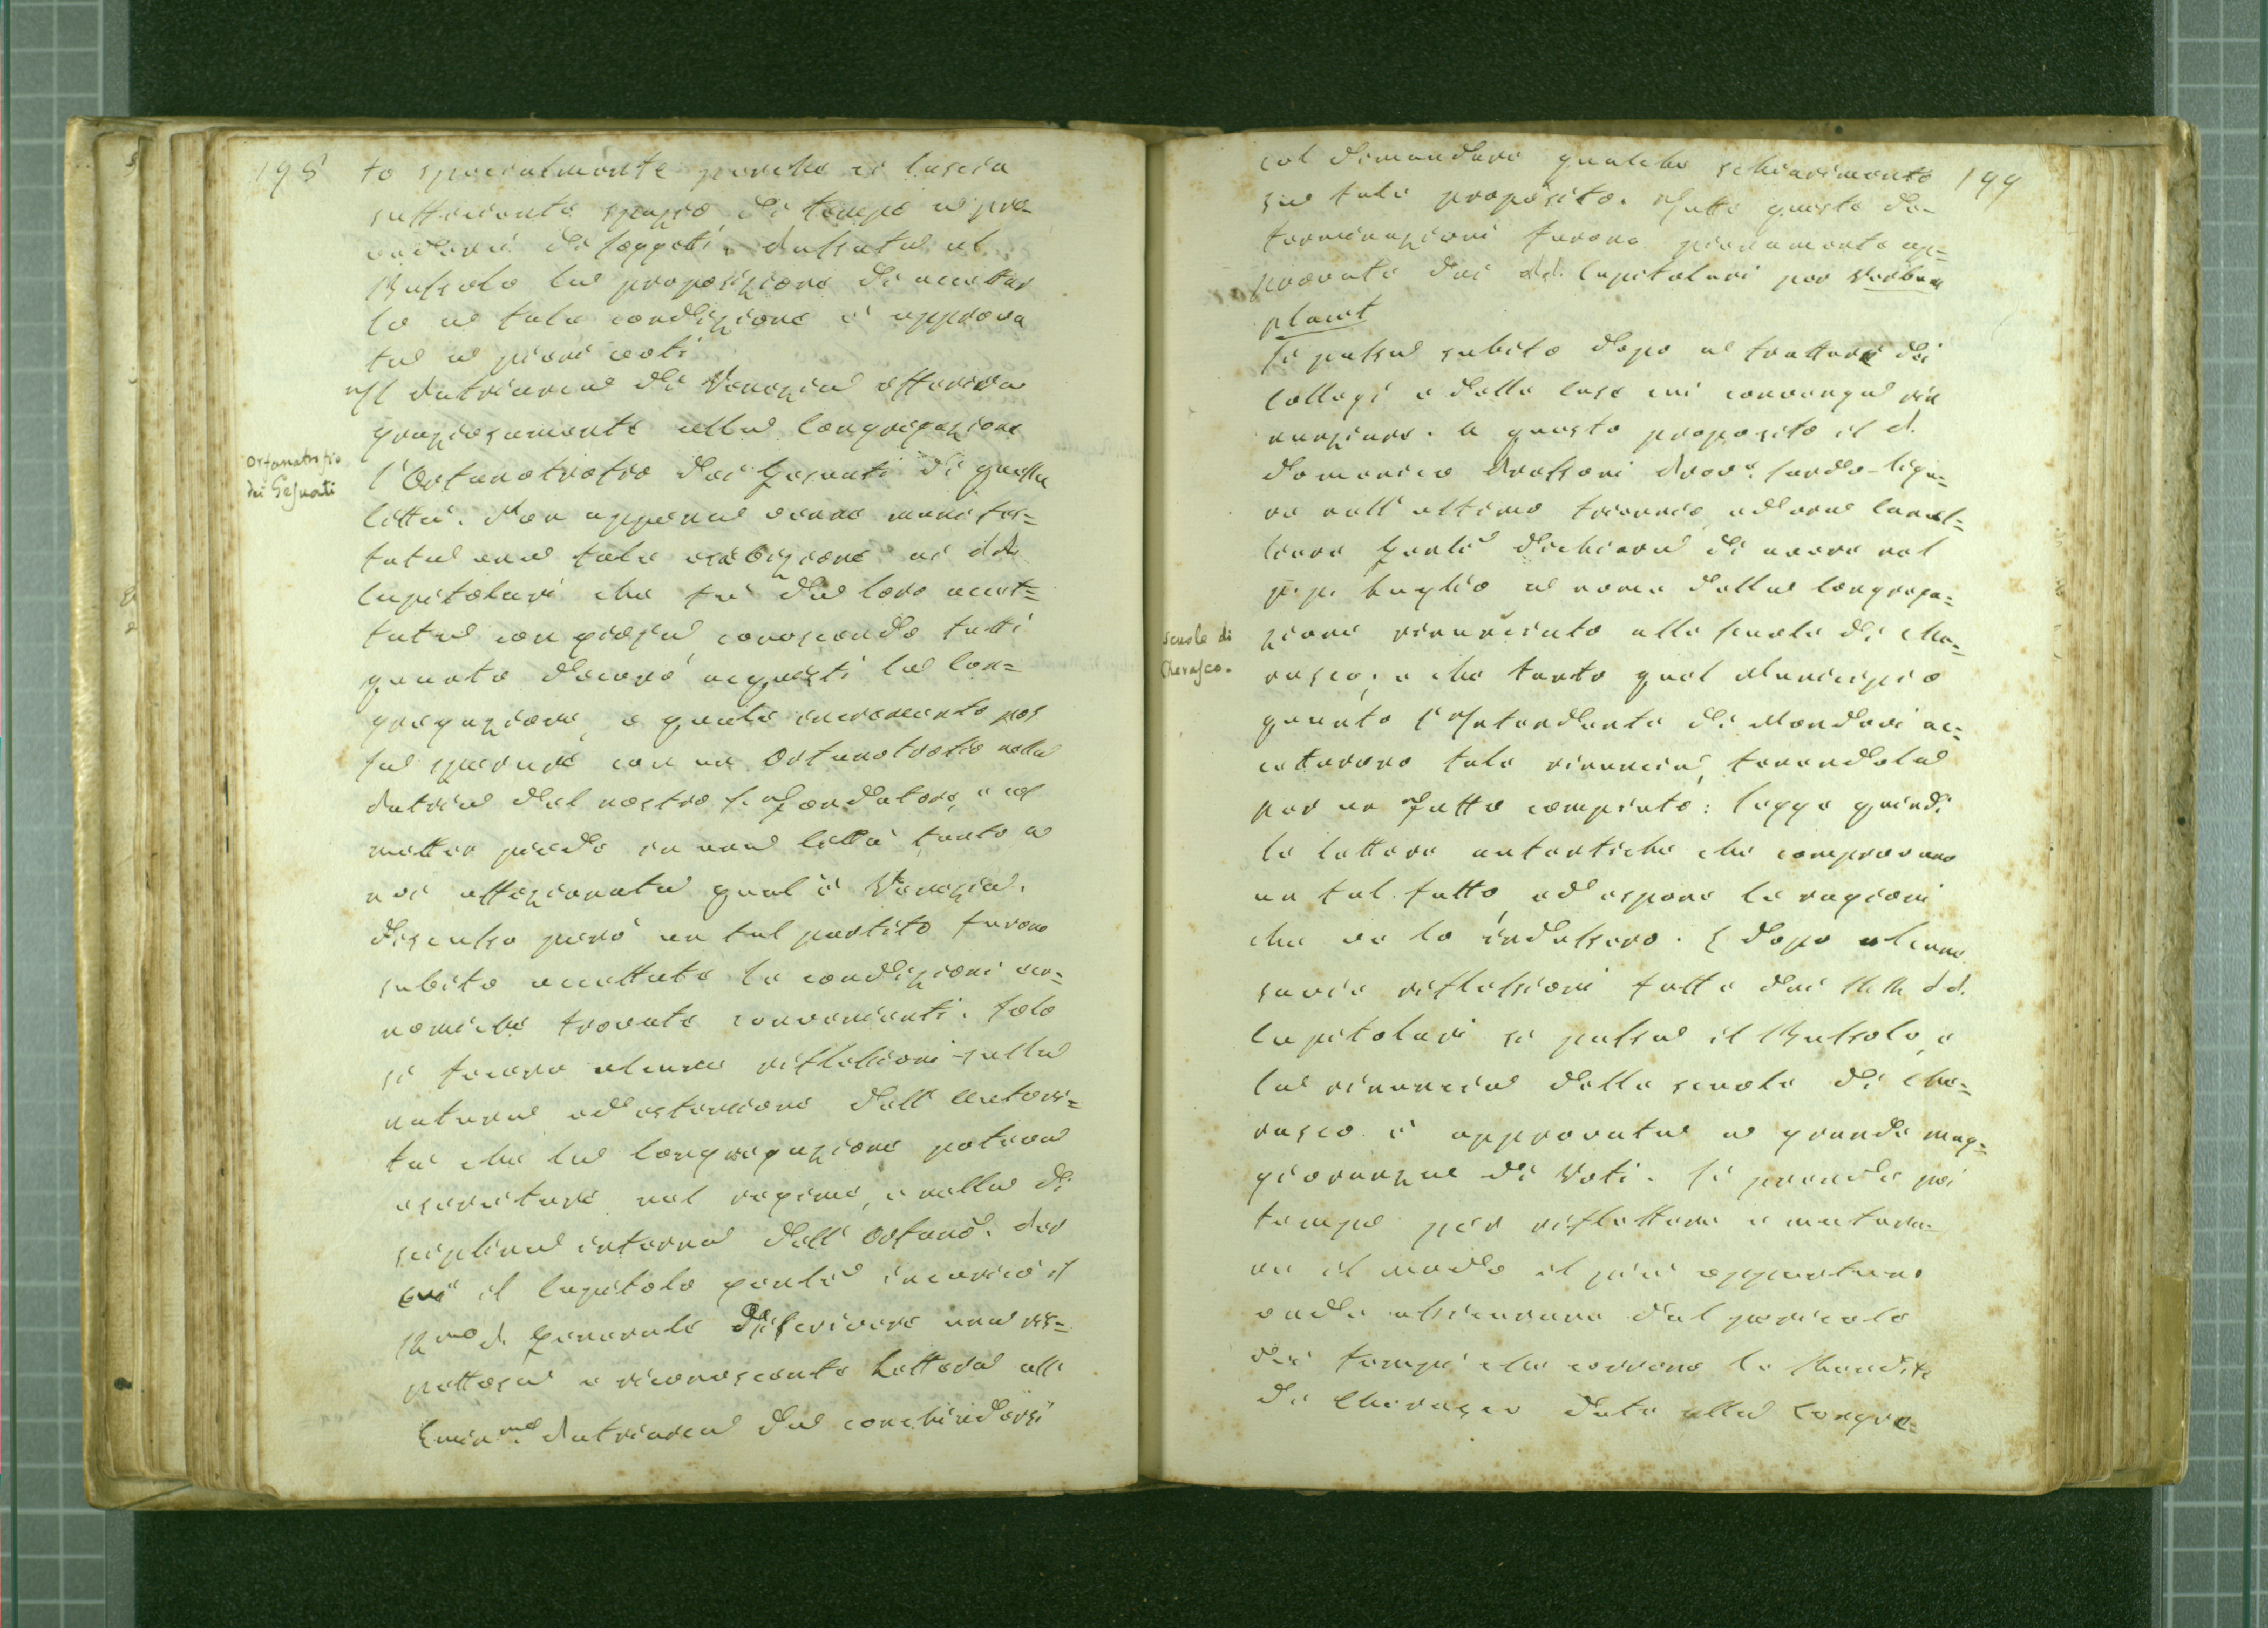 198
to specialmente perchè ci lascia
sufficiente spazio di tempo a pro-
vedere di soggetti. Passata al
Bussolo la proposizione di accettar
lo a tale condizione è approva
ta a pieni voti
Il Patriarca di Venezia offeriva
graziosamente alla Congregazione
Orfanotrofio
dei Gesuati
l'Orfanotrofio dei Gesuati di quella
Città. Non appena venne manifes=
tata una tale esibizione ai PP.
Capitolari che fu da loro accet=
tata con gioja, conoscendo tutti
quanto decoro acquisti la Con=
gregazione, e quale incremento pos
sa sperare con un Orfanotrofio nella
Patria del nostro S. Fondatore, e col
metter piede in una Città tanto a
noi affezionata qual è Venezia.
Discusso però un tal partito furono
subito accettate le condizioni eco=
nomiche trovate convenienti. Solo
si fecero alcune riflessioni sulla
natura ed estensione dell'Autori=
tà che la Congregazione poteva
esercitare nel regime, e nella di
sciplina interna dell'Orfano. Per
cui il Capitolo gentle incaricò il
Rmo P. Generale di scrivere una ris=
pettosa e riconoscente Lettera all'
Eminmo Patriarca da conchiudersi
199
col dimandare qualche schiarimento
su tale proposito. Tutte queste de=
terminazioni furono pienamente ap=
provate dai PP. Capitolari per verbum
placet
Si passa subito dopo a trattare dei
Collegi e delle Case cui convenga rin
unziare. A questo proposito il P.
Domenico Prassoni Prove Sardo-Ligu=
re nell'ultimo triennio, ed ora Cancel=
liere Genle dichiara di avere nel
p. p. Luglio a nome della Congrega=
Scuole di
Cherasco.
zione rinunciato alle Scuole di Che=
rasco; e che tanto quel Municipio
quanto l'Intendente di Mondovi ac=
cettarono tale rinuncia, tenendola
per un fatto compiuto: legge quindi
le lettere autentiche che comprovano
un tal fatto, ed espone le ragioni
che ve lo indussero. E dopo alcune
savie riflessioni fatte dai MM. PP.
Capitolari si passa il Bussolo, e
la rinuncia delle scuole di Che=
rasco è approvata a grande mag=
gioranza di Voti. Si prende poi
tempo per riflettere e matura=
re il modo il più opportuno
onde assicurare dal pericolo
dei tempi che corrono le Rendite
di Cherasco date alla Congre=